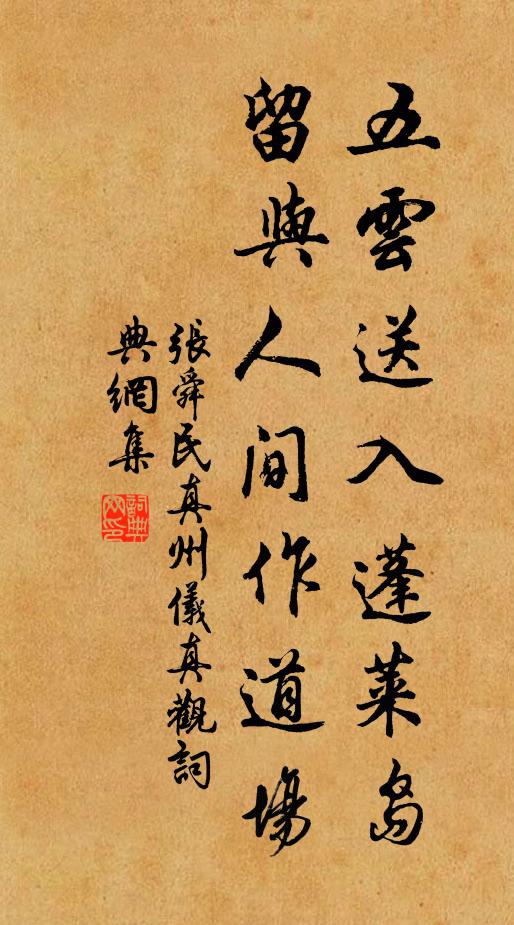 五雲送入蓬萊島
留與人间作道場
張舜民真州儀真觀詞
典網集
詞典网印